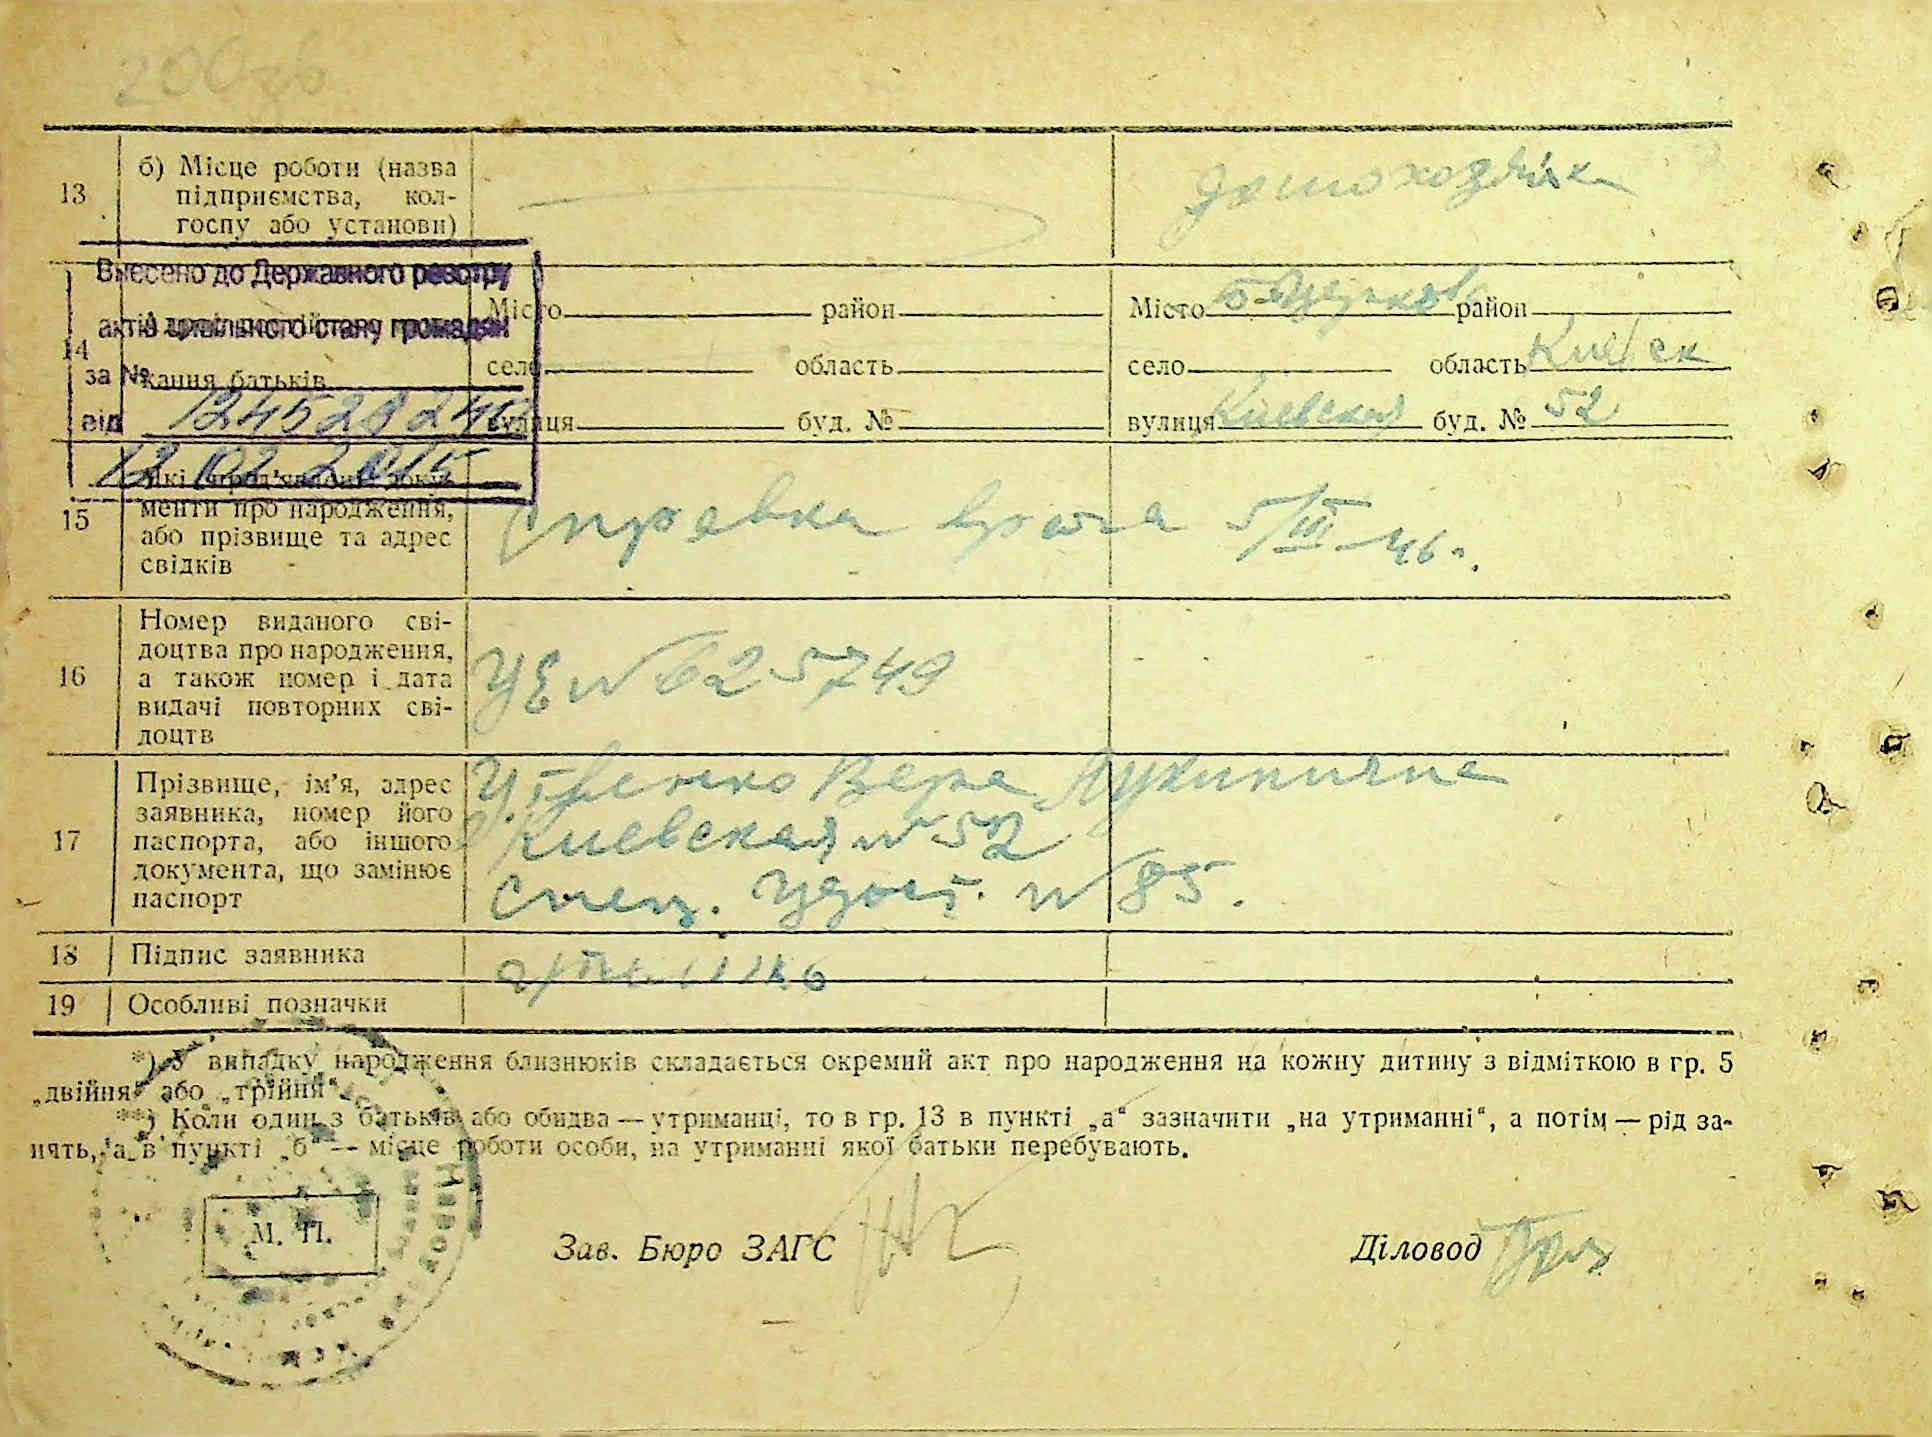 13
б) Місце роботи (назва
підприємства, кол-
госпу або установи)
домохозяйка
Внесено до Державного реєстру
актів цивільного стану громадян
за №
від 12452824
12 02 2015
14
кання батьків
Місто район
село область
вулиця буд. №
Місто б Церковь район
село область Киевск
вулиця Киевская буд. № 52
15
які пред'явлені доку-
менти про народження,
або прізвище та адрес
свідків
Справка врача 5/III-46 г.
16
Номер виданого сві-
доцтва про народження,
а також номер і дата
видачі повторних сві-
доцтв
УЕ № 625749
17
Прізвище, ім'я, адрес
заявника, номер його
паспорта, або іншого
документа, що замінює
паспорт
Вера
Киевская № 52
Спец. удост. № 85.
18
Підпис заявника
19
Особливі позначки
*) У випадку народження близнюків складається окремий акт про народження на кожну дитину з відміткою в гр. 5
„двійня“ або „трійня“.
**) Коли один з батьків або обидва — утриманці, то в гр. 13 в пункті „а“ зазначити „на утриманні“, а потім — рід за-
нять, а в пункті „б“ — місце роботи особи, на утриманні якої батьки перебувають.
М. П.
Зав. Бюро ЗАГС
Діловод